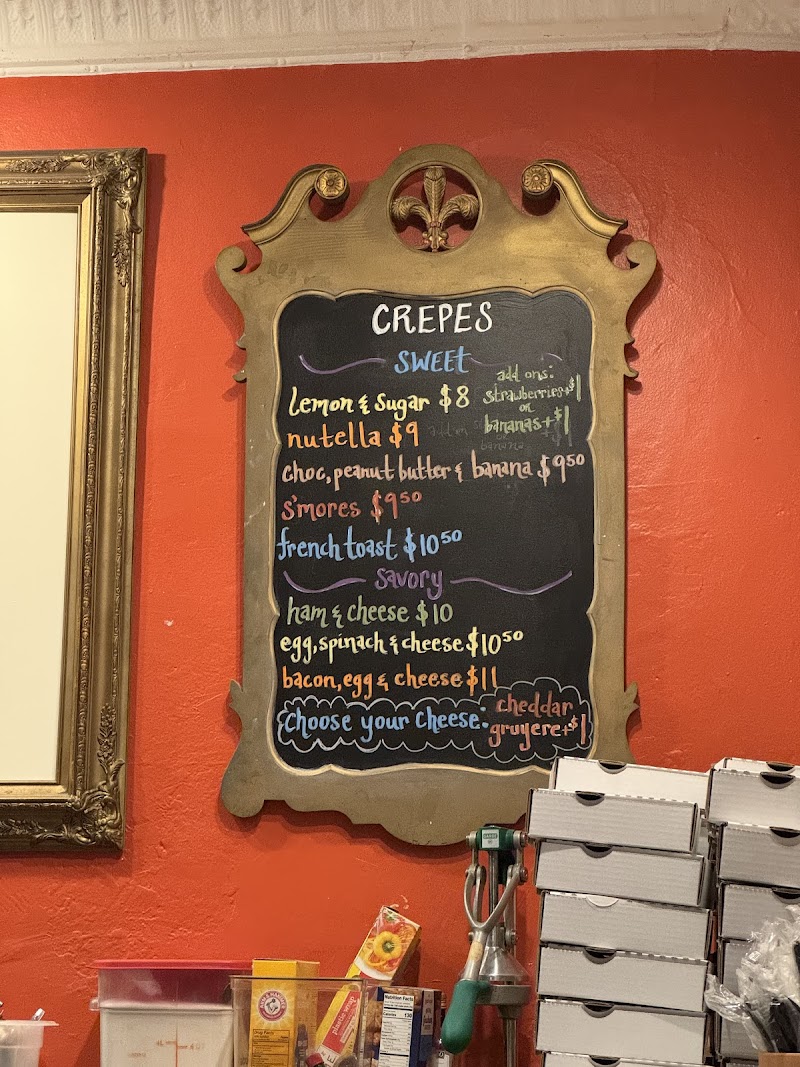 CREPES
SWEET
add ons:
strawberries+$1
or
bananas+$1
Lemon & Sugar $8
nutella $9
choc, peanut butter & banana $9⁵⁰
s'mores $9⁵⁰
french toast $10⁵⁰
Savory
ham & cheese $10
egg, spinach & cheese $10⁵⁰
bacon, egg & cheese $11
choose your cheese:
cheddar
gruyere+$1
ARM & HAMMER
plastic wrap
Nutrition Facts
Calories 130